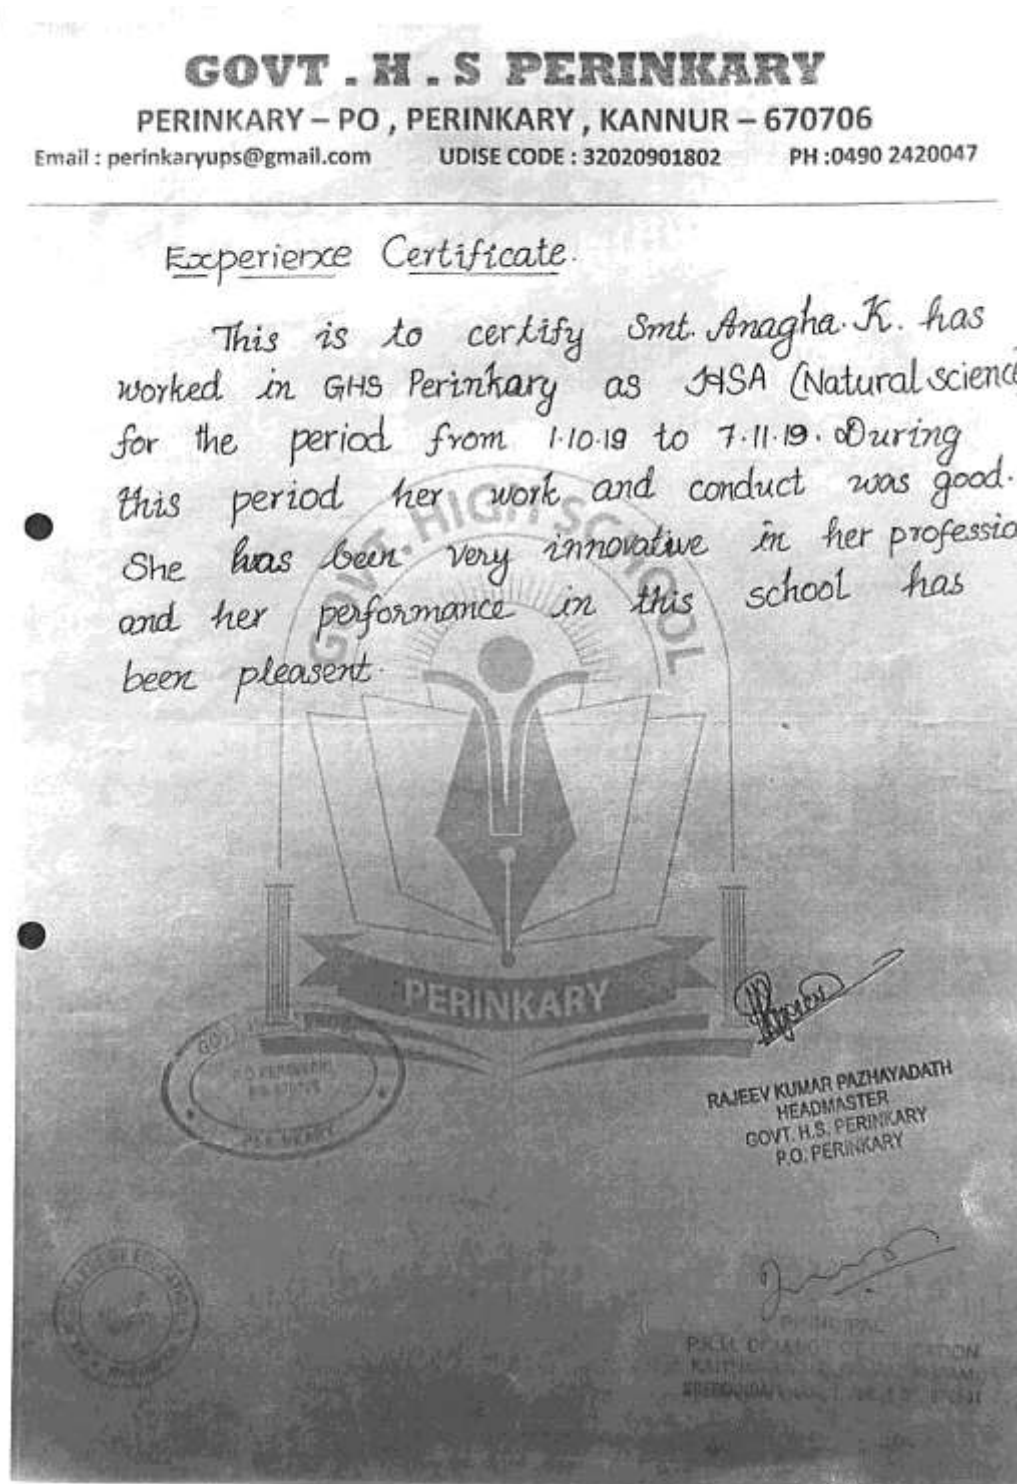 GOVT . H . S PERINKARY
PERINKARY – PO , PERINKARY , KANNUR – 670706
Email : perinkaryups@gmail.com UDISE CODE : 32020901802 PH :0490 2420047
Experience Certificate.
This is to certify Smt. Anagha. K. has
worked in GHS Perinkary as HSA (Natural science
for the period from 1.10.19 to 7.11.19. During
this period her work and conduct was good.
She has been very innovative in her professio
and her performance in this school has
been pleasent.
GOVT. HIGH SCHOOL
PERINKARY
RAJEEV KUMAR PAZHAYADATH
HEADMASTER
GOVT. H.S. PERINKARY
P.O. PERINKARY
PERINKARY
PRINCIPAL
P.K.M. COLLEGE OF EDUCATION